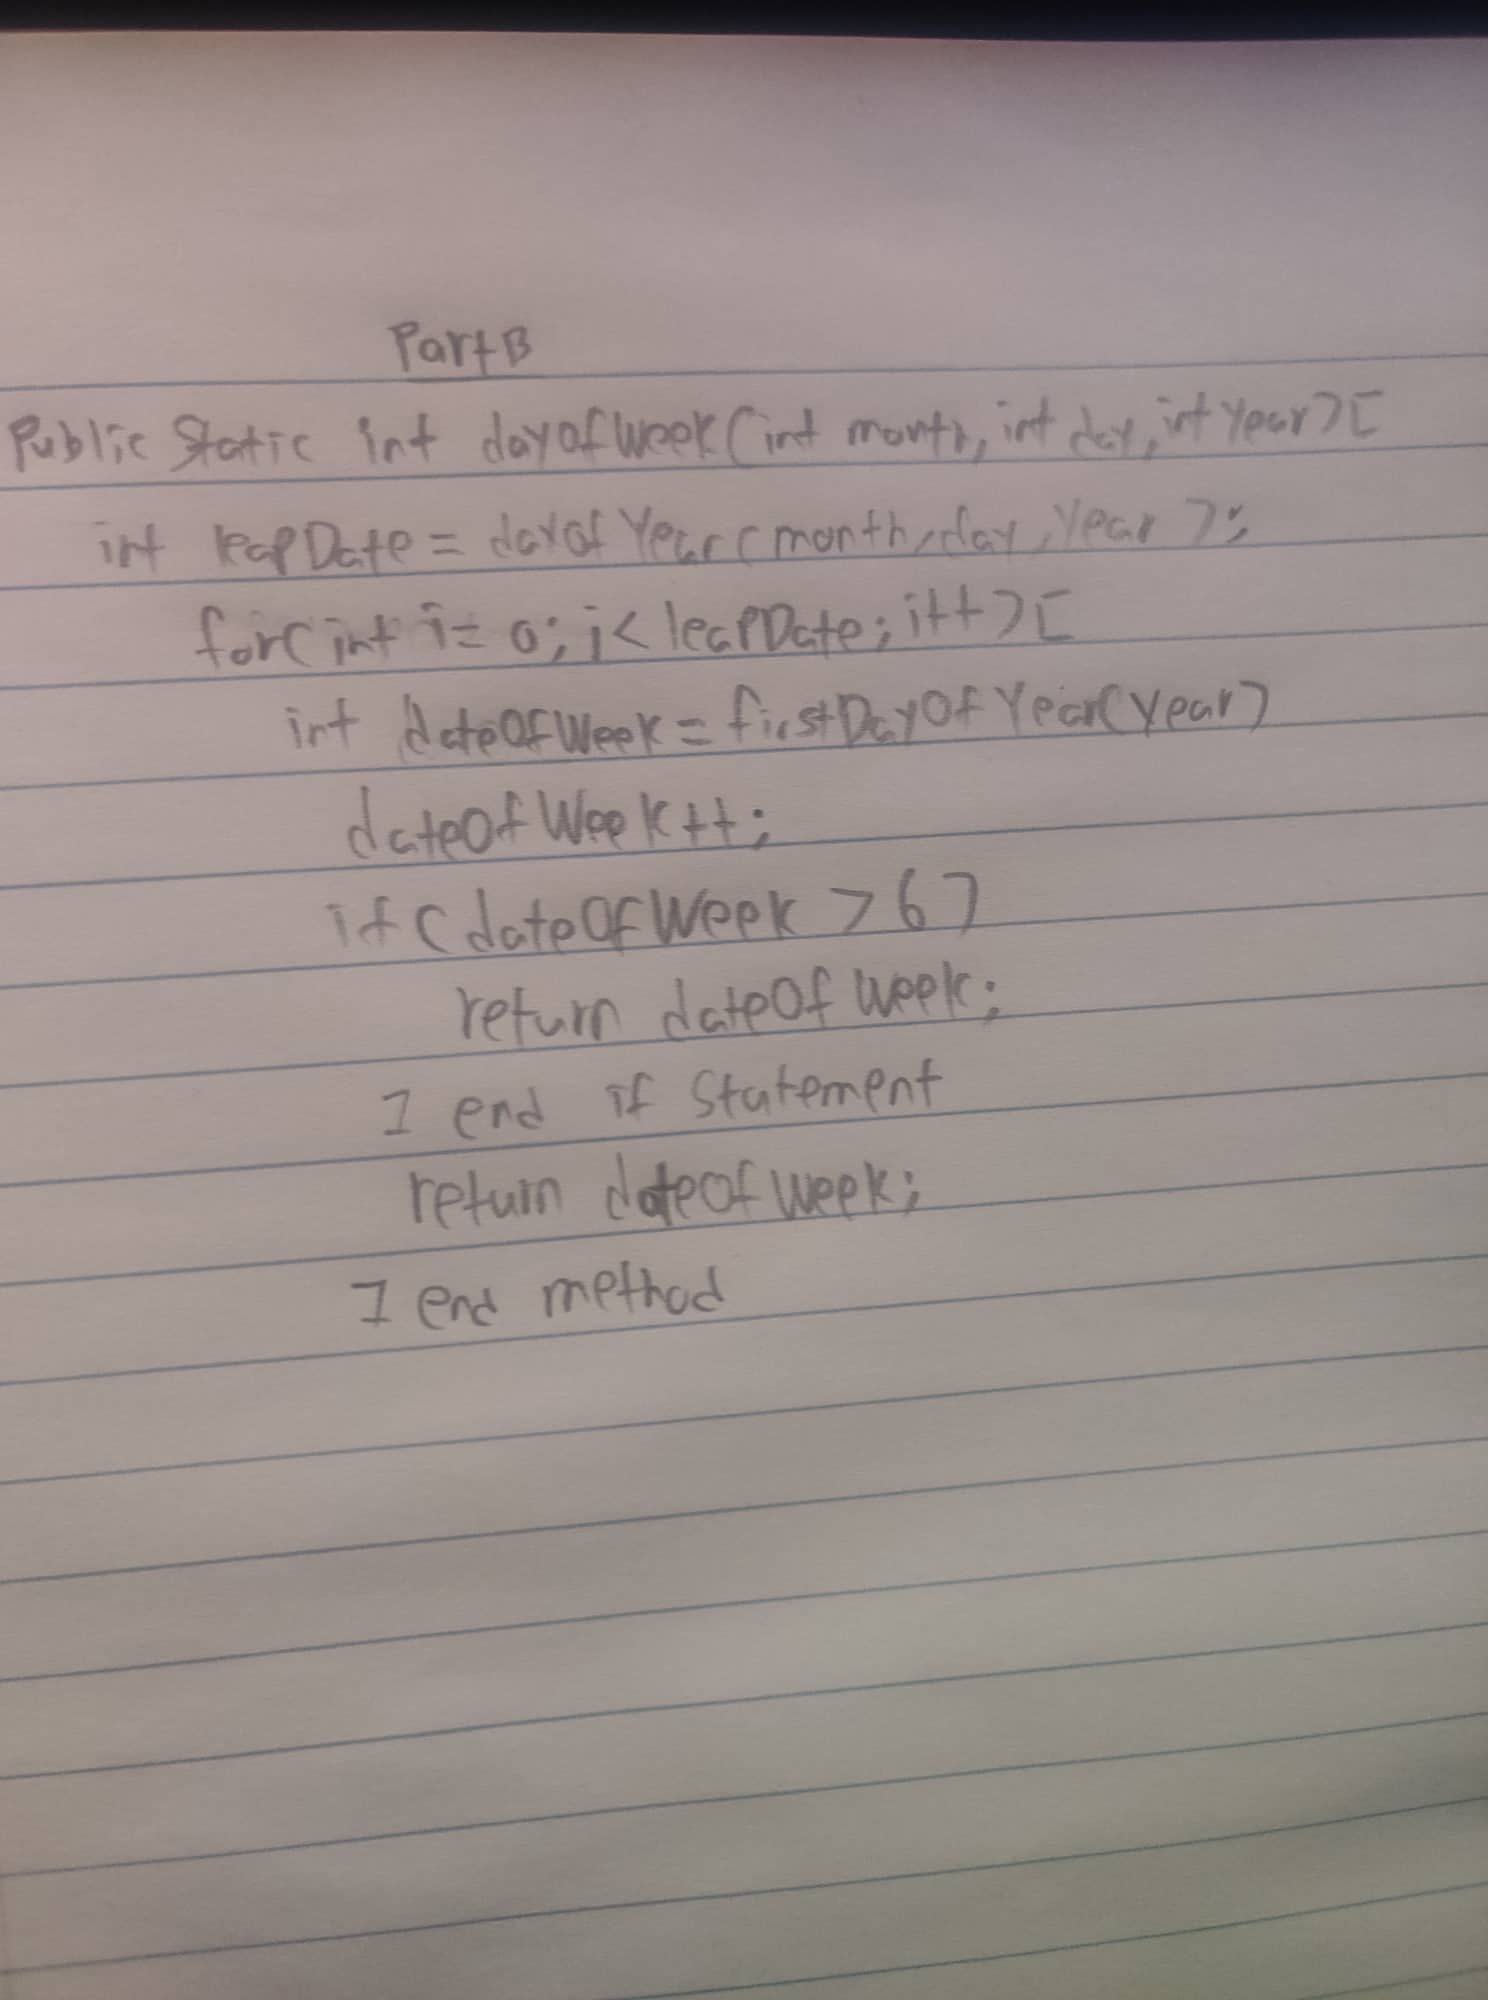 Part B
Public Static int dayofWeek(int month, int day, int Year)[
int leapDate = dayof Year(month, day, Year);
for(int i = 0; i < leapDate; i++)[
int dateOfWeek = firstDayOf Year(Year)
dateOf Week++;
if(dateOfWeek > 6)
return dateOf Week;
] end if Statement
return dateofweek;
] end method